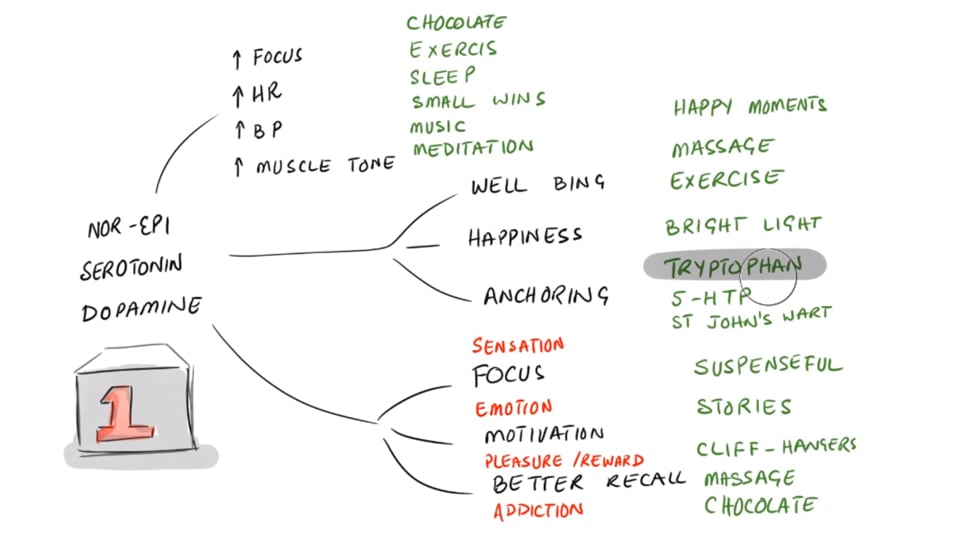 ↑ FOCUS
↑ HR
↑ BP
↑ MUSCLE TONE
CHOCOLATE
EXERCIS
SLEEP
SMALL WINS
MUSIC
MEDITATION
NOR-EPI
SEROTONIN
DOPAMINE
WELL BING
HAPPINESS
ANCHORING
HAPPY MOMENTS
MASSAGE
EXERCISE
BRIGHT LIGHT
TRYPTOPHAN
5-HTP
ST JOHN'S WART
SENSATION
FOCUS
EMOTION
MOTIVATION
PLEASURE/REWARD
BETTER RECALL
ADDICTION
SUSPENSEFUL
STORIES
CLIFF-HANGERS
MASSAGE
CHOCOLATE
1